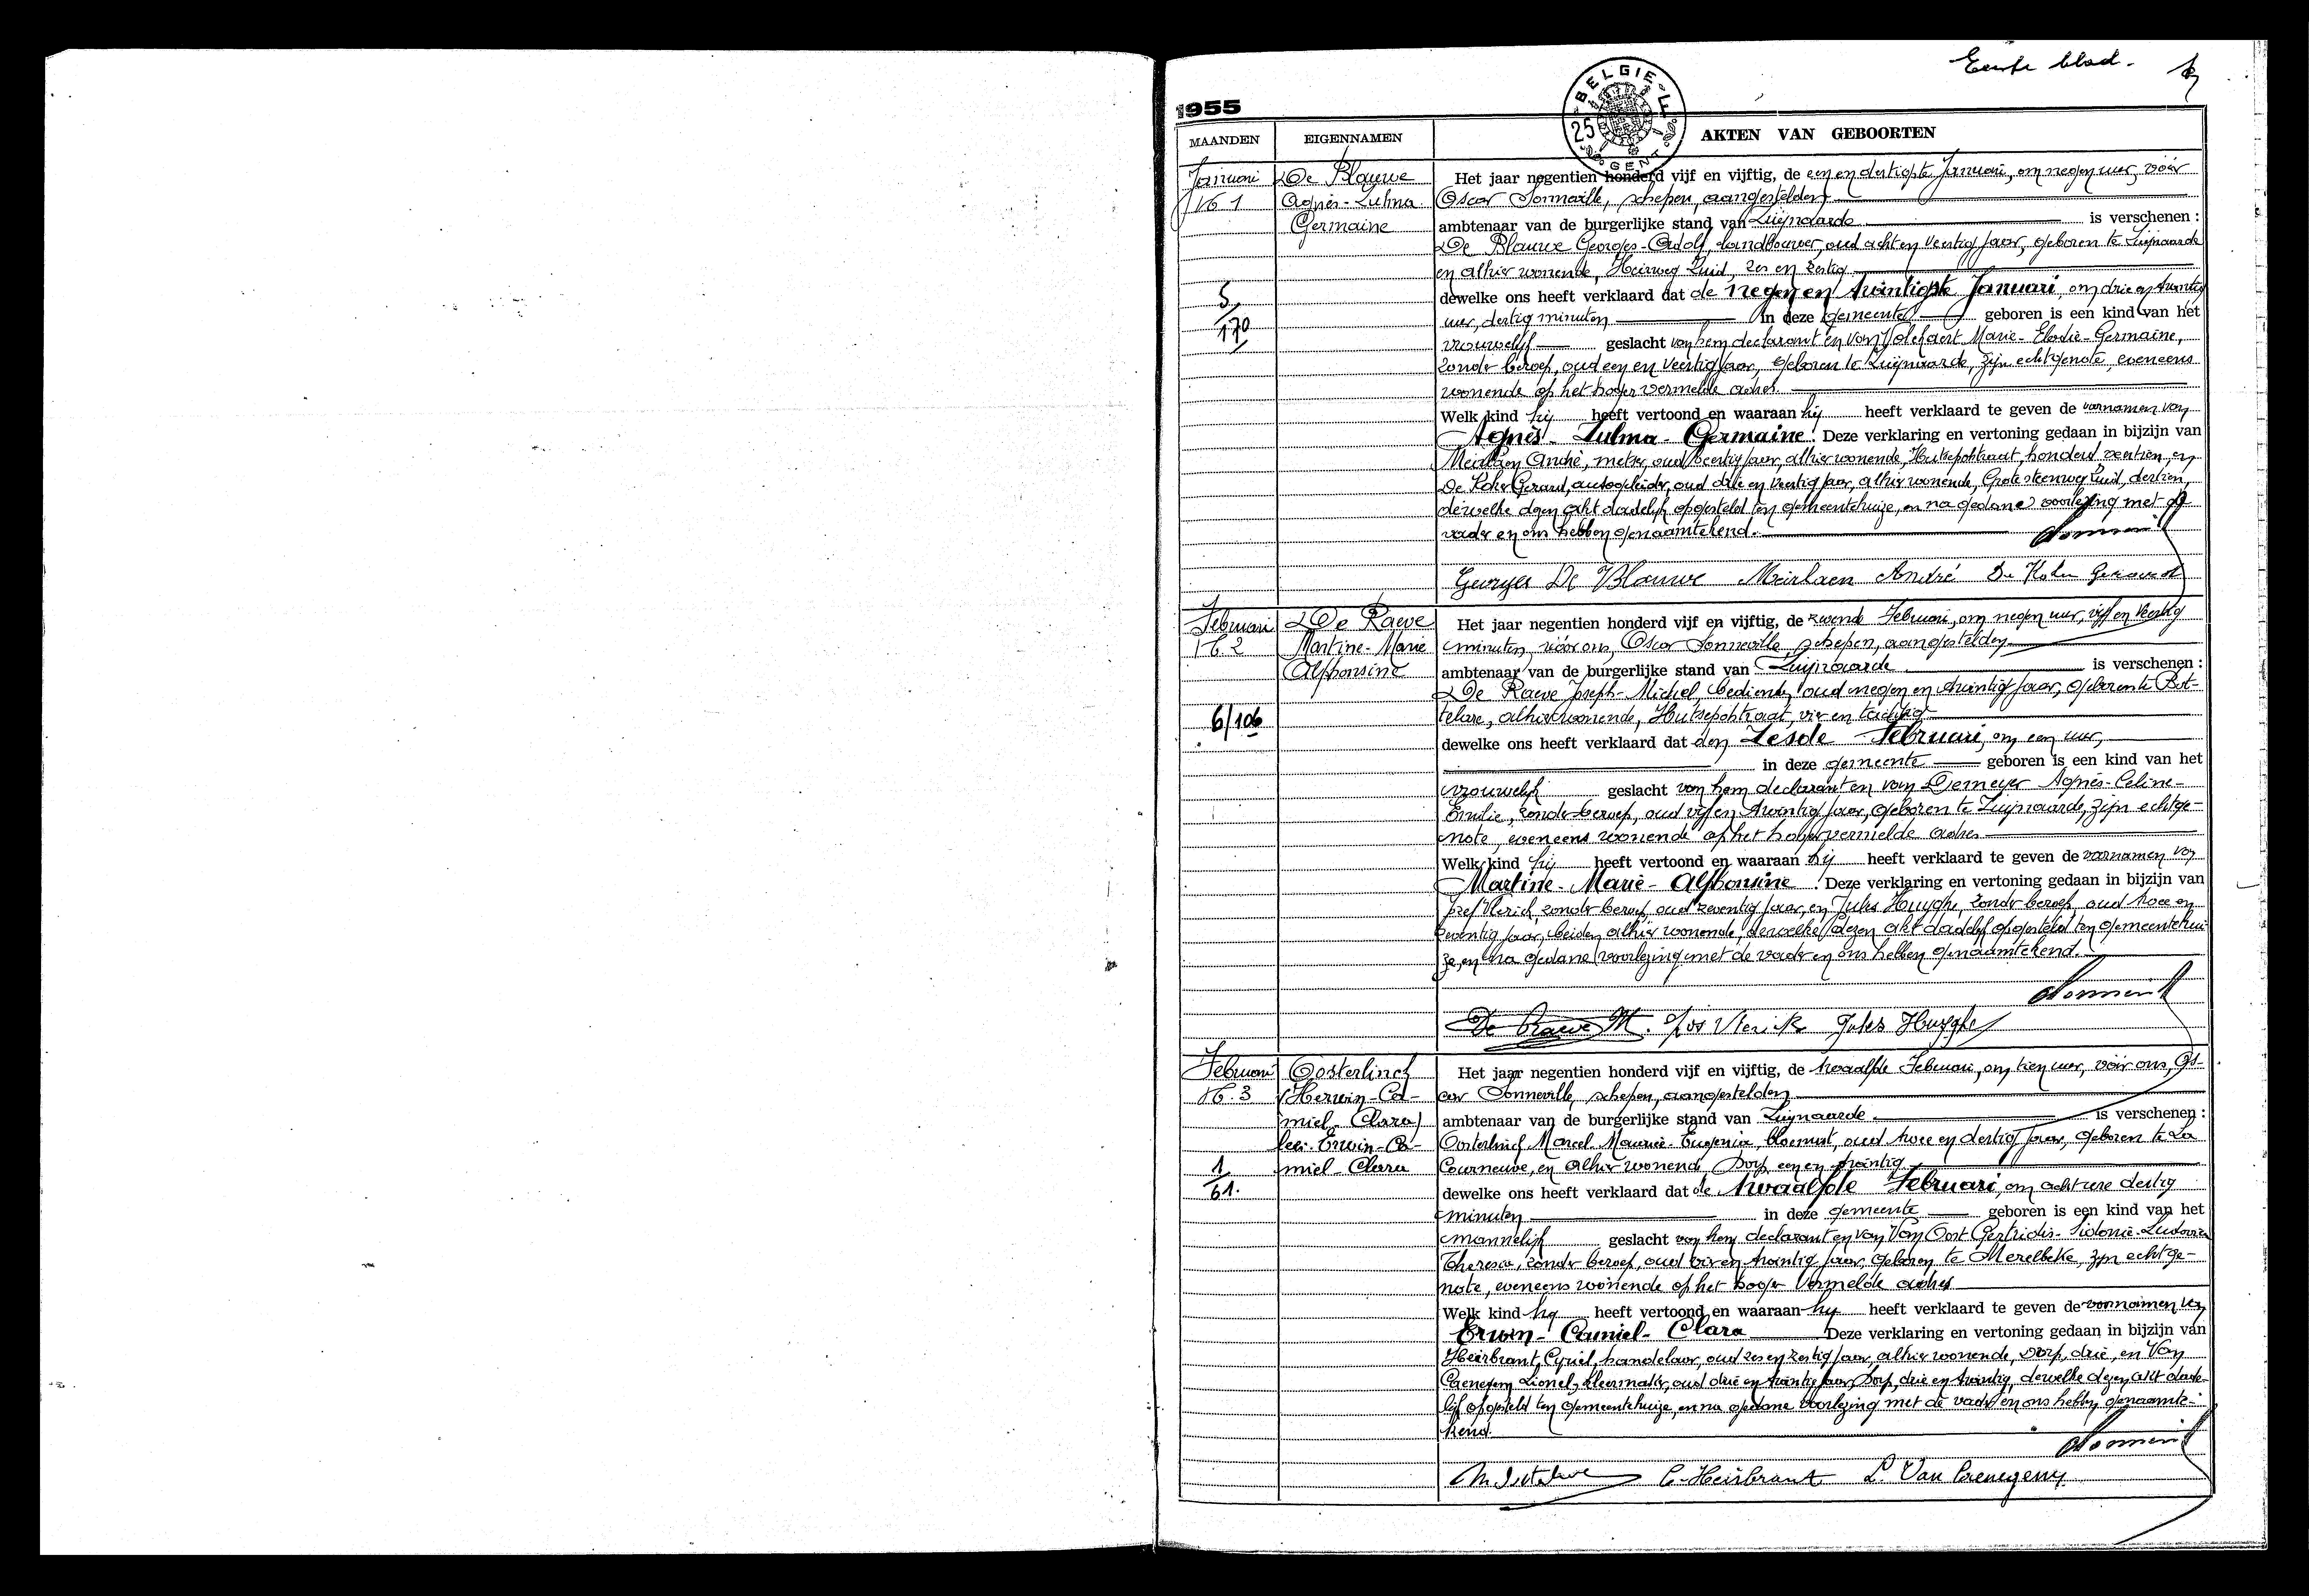 Eerste blad.
1955
BELGIE
25
GENT
MAANDEN EIGENNAMEN AKTEN VAN GEBOORTEN
Januari
N. 1
De Blauwe
Agnès-Zulma
Germaine
5/170
Het jaar negentien honderd vijf en vijftig, de een en dertigste Januari, om negen uur, vóór
Oscar Sonneville, schepen, aangestelden
ambtenaar van de burgerlijke stand van Zwijnaarde is verschenen :
De Blauwe Georges-Adolf, landbouwer, oud acht en veertig jaar, geboren te Zwijnaarde
en alhier wonende, Heirweg Zuid, zes en zestig
dewelke ons heeft verklaard dat de negen en twintigste Januari, om drie en twintig
uur, dertig minuten in deze gemeente geboren is een kind van het
vrouwelijk geslacht van hem declarant en van Marie-Elodie-Germaine,
zonder beroep, oud een en veertig jaar, geboren te Zwijnaarde, zijn echtgenote, eveneens
wonende op het hoger vermelde adres.
Welk kind hij heeft vertoond en waaraan hij heeft verklaard te geven de voornamen van
Agnès-Zulma-Germaine. Deze verklaring en vertoning gedaan in bijzijn van
Meirlaen André, metser, oud veertig jaar, alhier wonende, Hutsepotstraat, honderd en
De Koker Gerard, autogeleider, oud drie en veertig jaar, alhier wonende, Grote steenweg Zuid, dertien,
dewelke dezen akt dadelijk opgesteld ten gemeentehuize, en na gedane voorlezing met de
vader en ons hebben genaamtekend.
Georges De Blauwe Meirlaen André De Koker Gerard
Februari
N. 2
De Raeve
Martine-Marie
Alphonsine
6/106
Het jaar negentien honderd vijf en vijftig, de Februari, om negen uur, vijf en veertig
minuten, vóór ons, Oscar Sonneville, schepen, aangestelden
ambtenaar van de burgerlijke stand van Zwijnaarde is verschenen :
De Raeve Joseph-Michel, bediende, oud negen en twintig jaar, geboren te Bot-
telare, alhier wonende, Hutsepotstraat, vier en tachtig
dewelke ons heeft verklaard dat den Zesde Februari, om een uur,
in deze gemeente geboren is een kind van het
vrouwelijk geslacht van hem declarant en van Demeyer Agnès-Celine-
Emilie, zonder beroep, oud vijf en twintig jaar, geboren te Zwijnaarde, zijn echtge-
note, eveneens wonende op het hoger vermelde adres
Welk kind hij heeft vertoond en waaraan hij heeft verklaard te geven de voornamen van
Martine-Marie-Alphonsine. Deze verklaring en vertoning gedaan in bijzijn van
Jozef Vlerick, zonder beroep, oud zeventig jaar, en Jules Huyghe, zonder beroep, oud twee en
zeventig jaar, beiden alhier wonende, dewelke dezen akt dadelijk opgesteld ten gemeentehui-
ze, en na gedane voorlezing met de vader en ons hebben genaamtekend.
De Raeve M. Jos Vlerick Jules Huyghe
Februari
N. 3
Oosterlinck
(Herwin-Ca-
miel-Clara)
lees: Erwin-Ca-
miel-Clara
1/61.
Het jaar negentien honderd vijf en vijftig, de twaalfde Februari, om tien uur, vóór ons, Os-
car Sonneville, schepen, aangestelden
ambtenaar van de burgerlijke stand van Zwijnaarde is verschenen :
Oosterlinck Marcel-Maurice-Eugenia, bloemist, oud twee en dertig jaar, geboren te La
Courneuve, en alhier wonend, Dorp, een en twintig
dewelke ons heeft verklaard dat de twaalfde Februari, om acht ure dertig
minuten in deze gemeente geboren is een kind van het
mannelijk geslacht van hem declarant en van Van Oost Gertridis-Sidonie-Ludovica
Theresia, zonder beroep, oud vier en twintig jaar, geboren te Merelbeke, zijn echtge-
note, eveneens wonende op het hoger vermelde adres
Welk kind hij heeft vertoond en waaraan hij heeft verklaard te geven de voornamen van
Erwin-Camiel-Clara Deze verklaring en vertoning gedaan in bijzijn van
Heirbrant Cyriel, handelaar, oud zes en zestig jaar, alhier wonende, Dorp, drie, en Van
Crenegem Lionel, kleermaker, oud drie en twintig jaar, Dorp, drie en twintig, dewelke dezen akt dade-
lijk opgesteld ten gemeentehuize, en na gedane voorlezing met de vader en ons hebben genaamte-
kend.
C. Heirbrant L. Van Crenegem